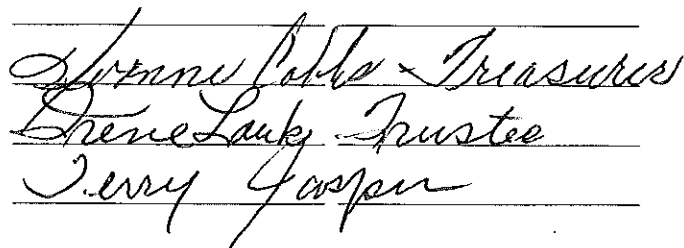 Yvonne Cobbs - Treasurer
Irene Lauk - Trustee
Terry Jasper